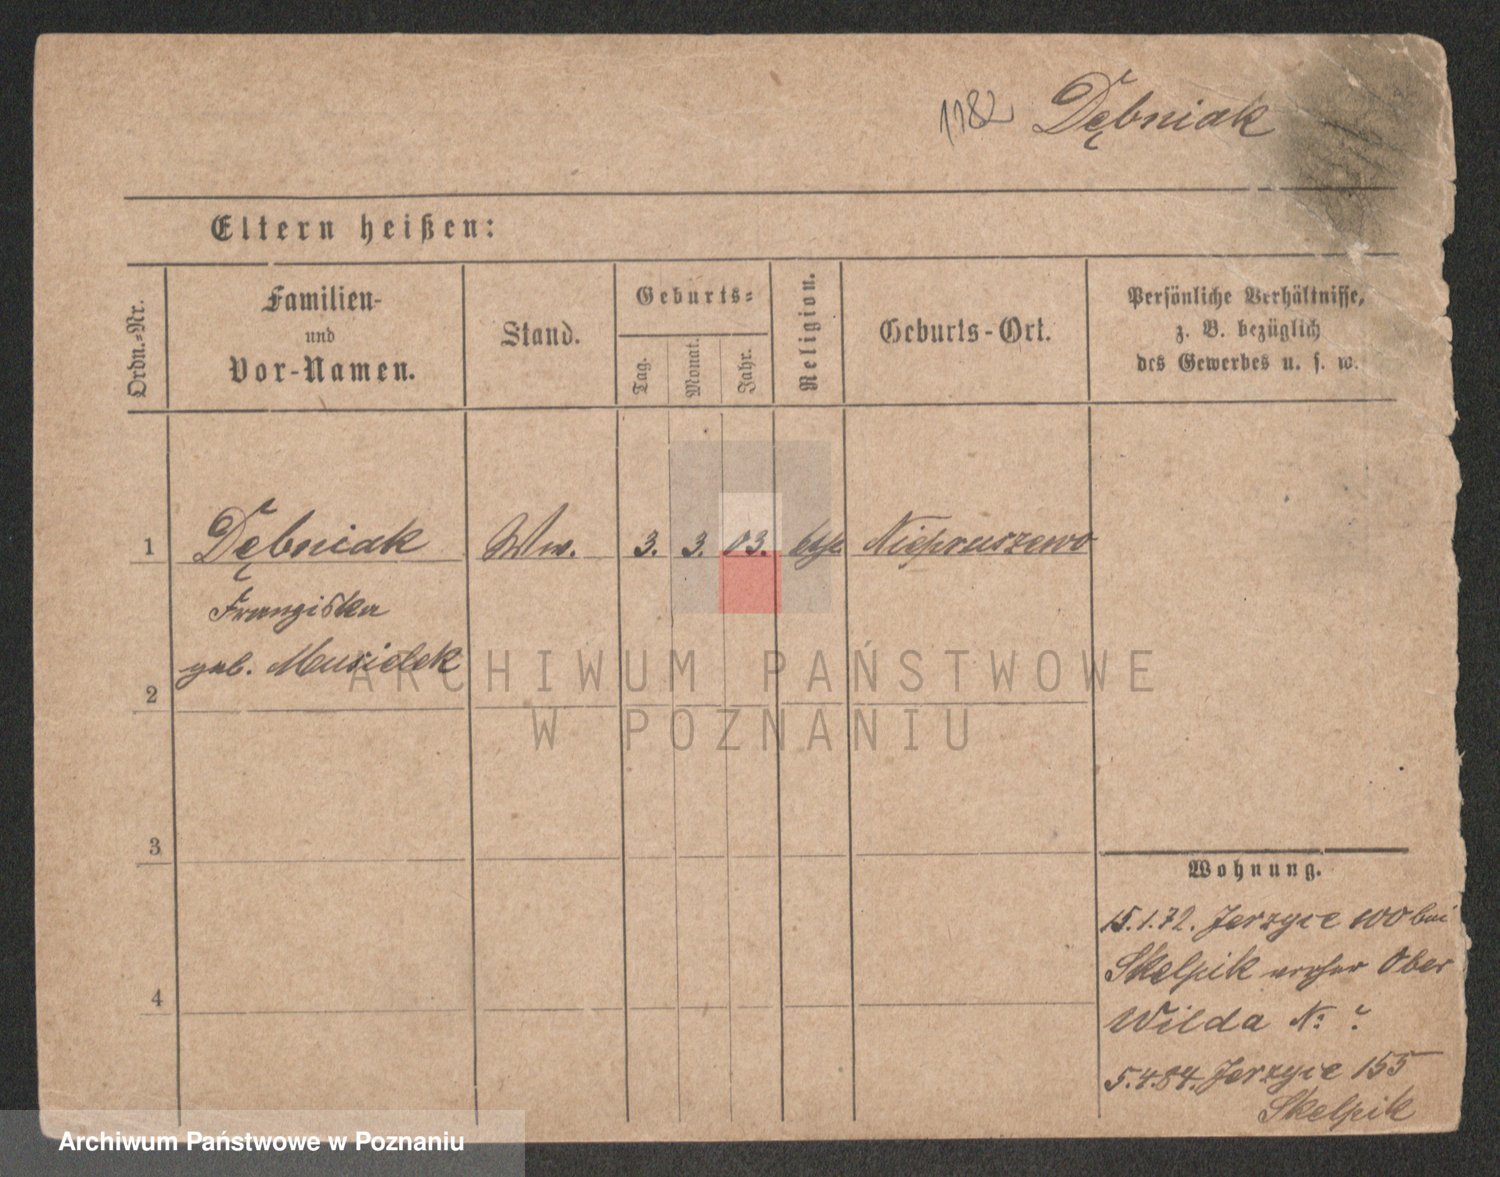 1182 Dębniak
Eltern heißen:
Ordn.-Nr.
Familien-
und
Vor-Namen.
Stand.
Geburts-
Tag.
Monat.
Jahr.
Religion.
Geburts-Ort.
Persönliche Verhältnisse,
z. B. bezüglich
des Gewerbes u. s. w.
1 Dębniak Ww. 3. 3. 03. kth. Niepruszewo
Franziska
geb. Musielak
2
3
4
Wohnung.
15.1.72. Jerzyce 100 bei
Skelpik vorher Ober
Wilda N: ?
5.4.84. Jerzyce 155
Skelpik
ARCHIWUM PAŃSTWOWE
W POZNANIU
Archiwum Państwowe w Poznaniu